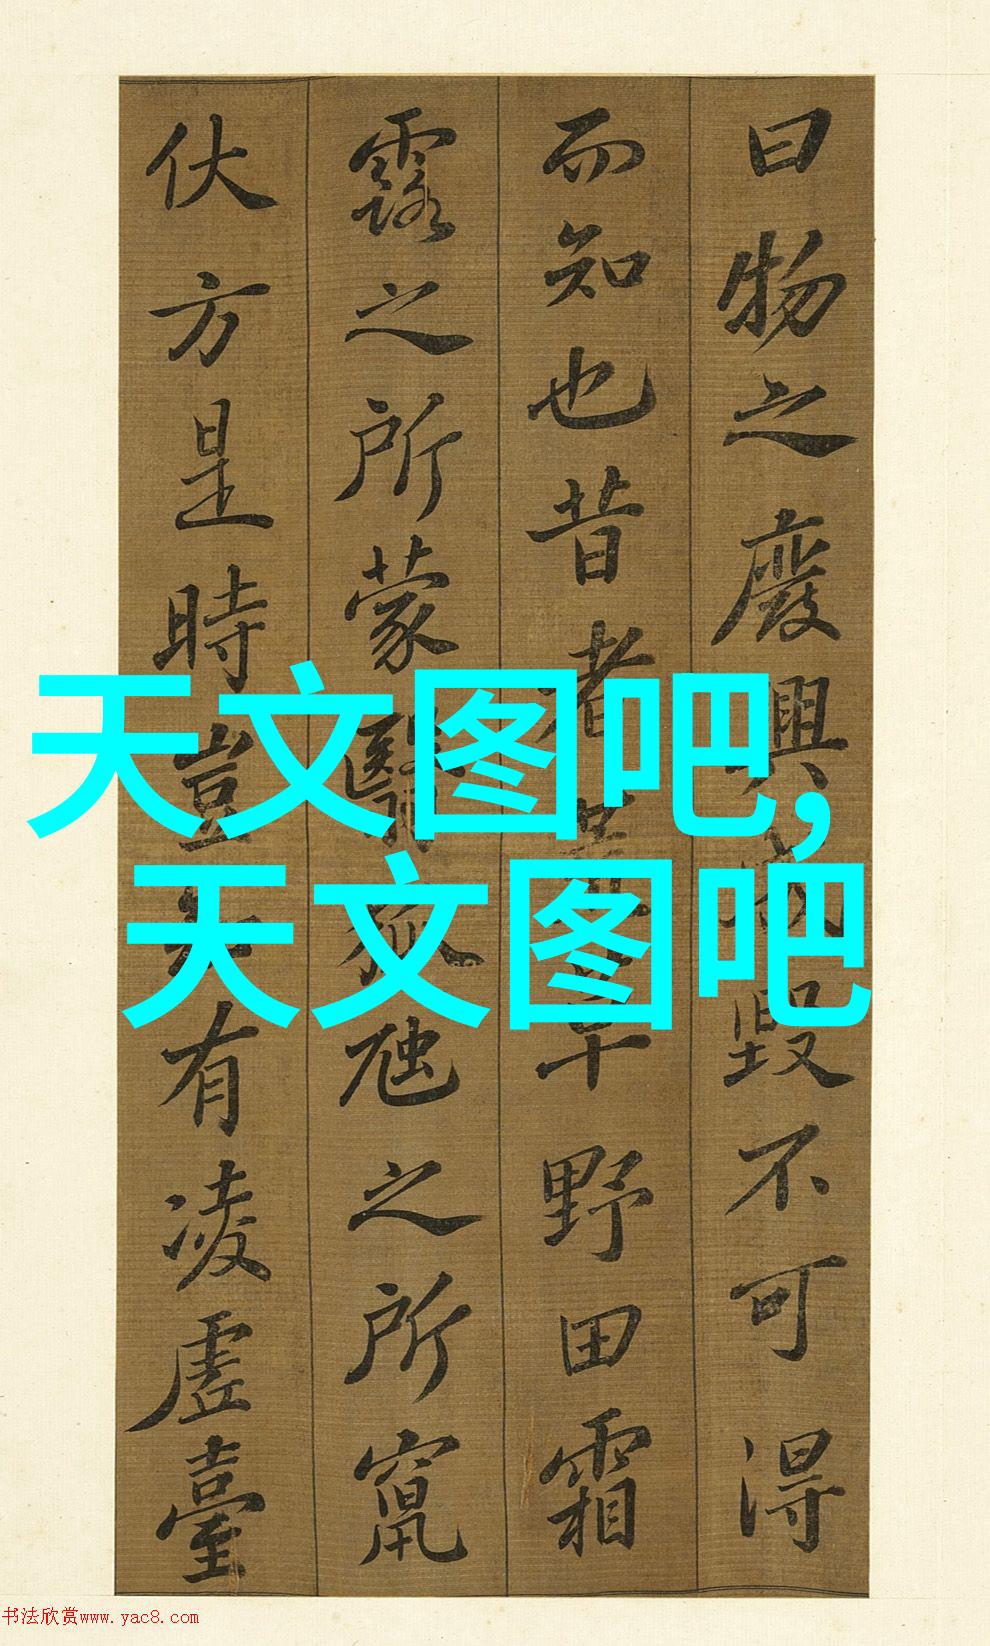 曰物之廢興成毀不可得
而知也昔者荒草野田霜
露之所蒙翳狐虺之所竄
伏方是時豈知有凌虛臺
天文图吧,
天文图吧
书法欣赏www.yac8.com